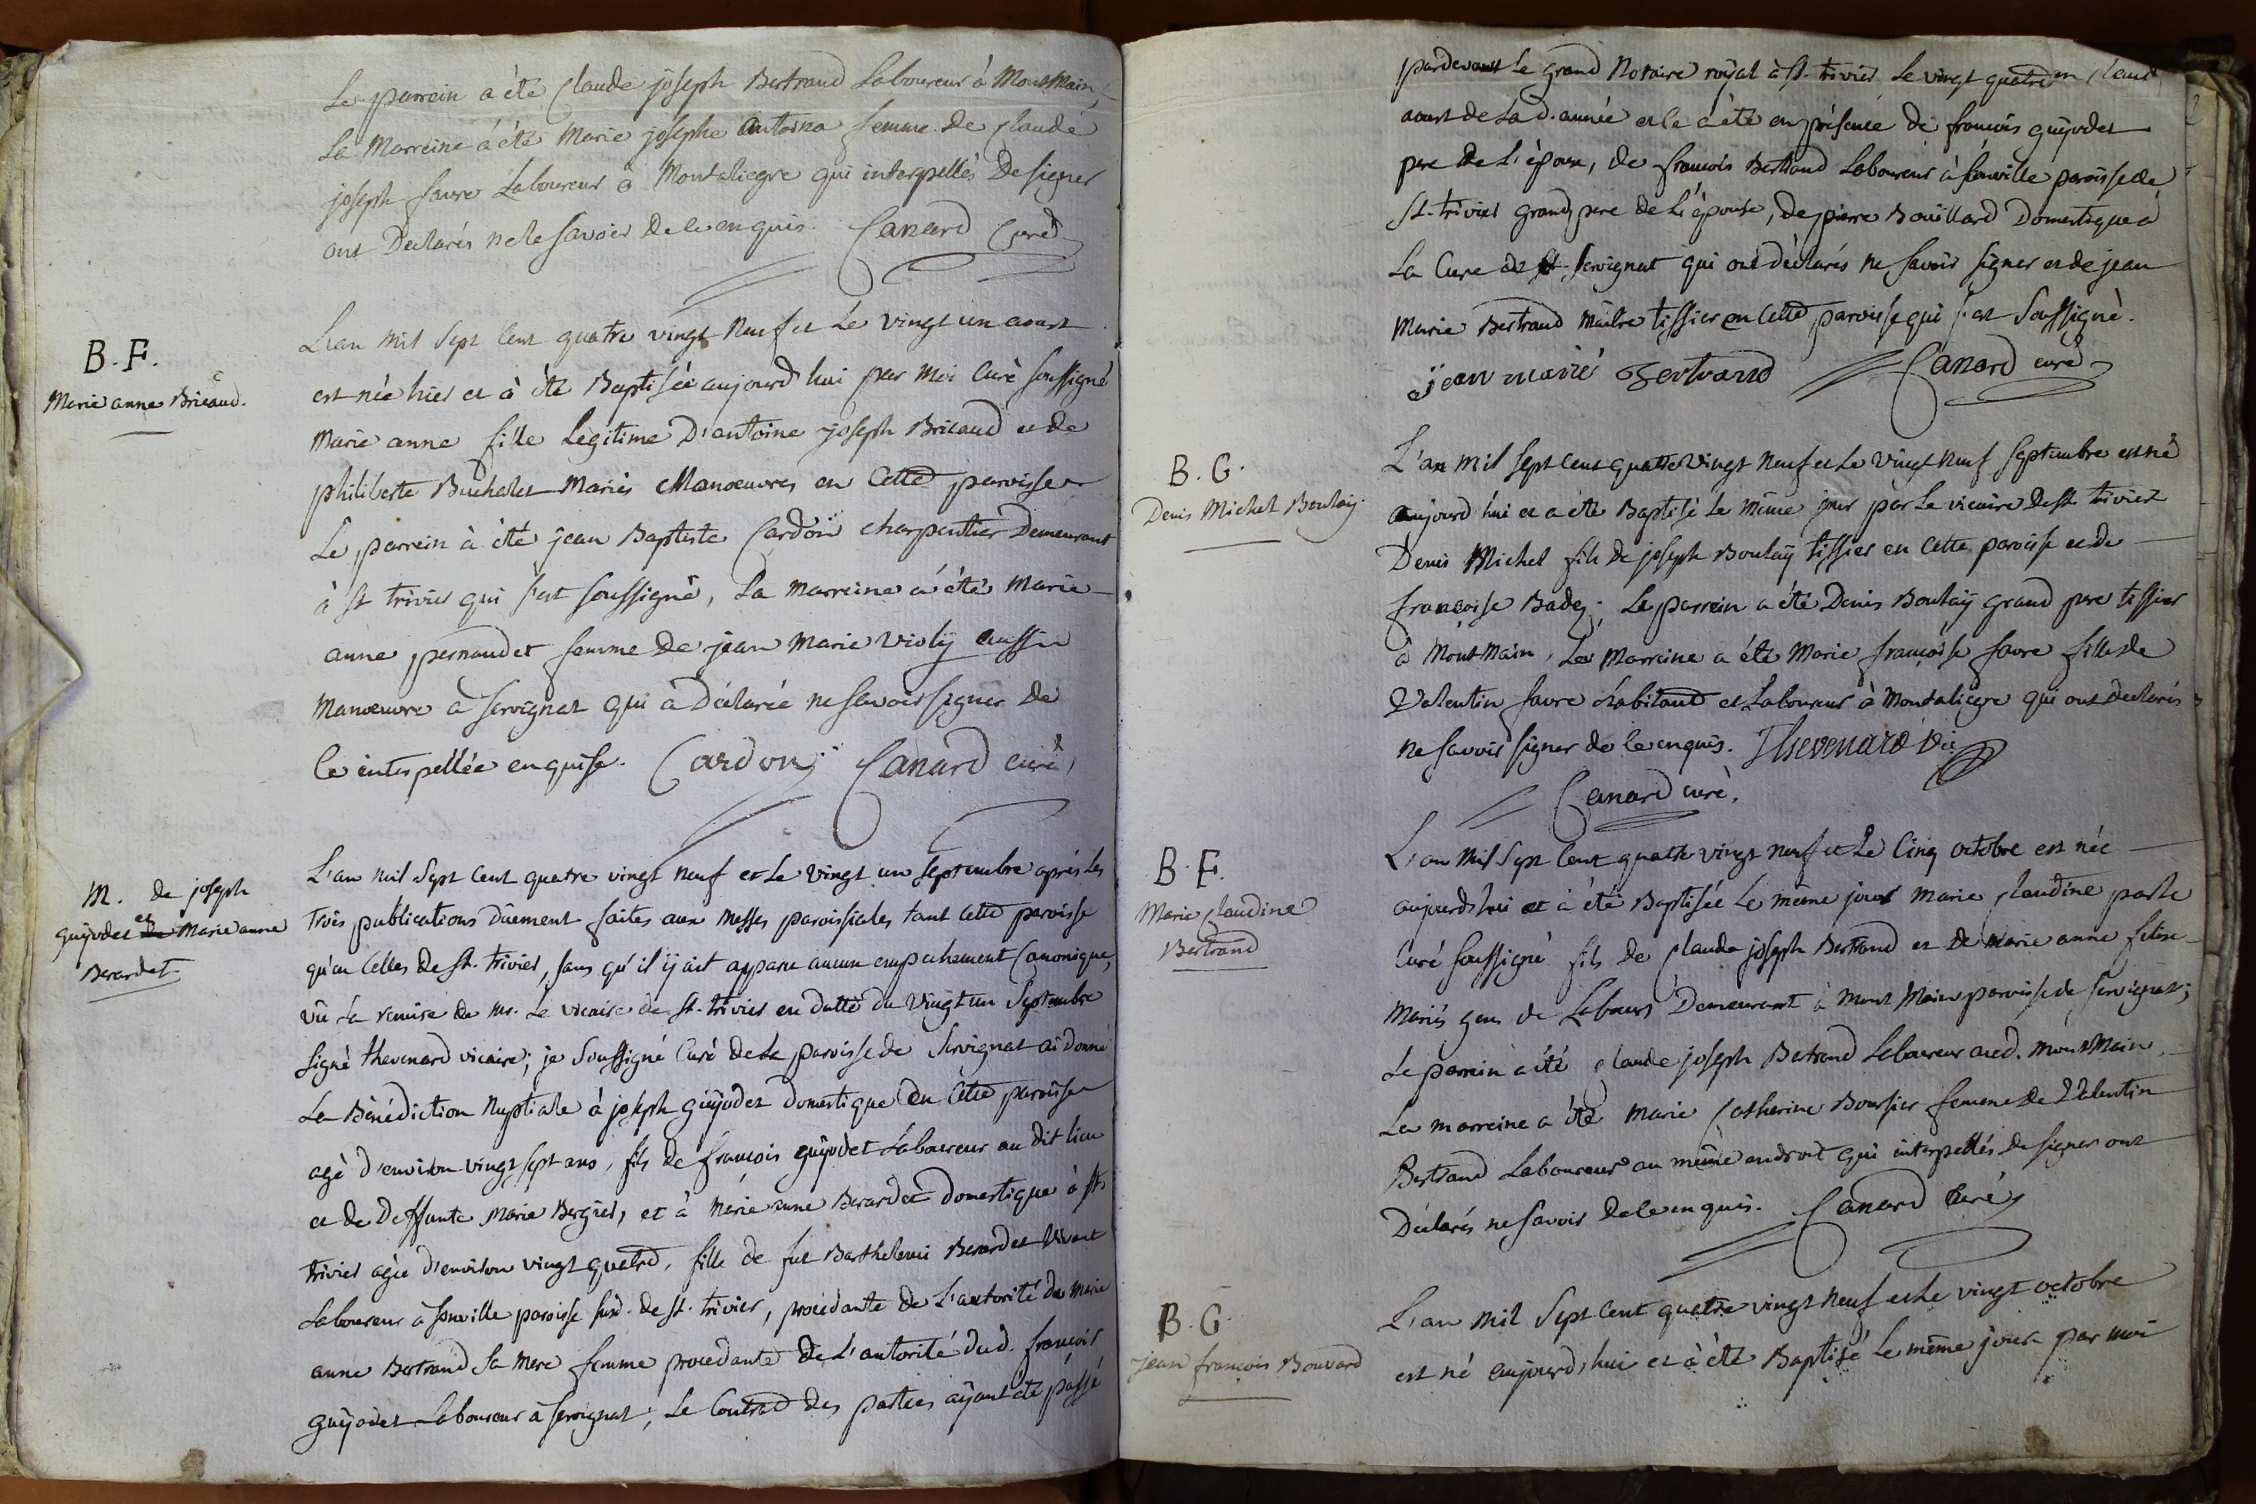 Le parrein a été Claude joseph Bertrand Laboureur à MontMain,
La Marreine à été Marie josephe antoina femme de Claude
joseph favre Laboureur à Montaliegre qui interpellés De signer
ont Declarés ne le savoir de ce enquis. Canard Curé
B. F.
Marie anne Bricaud.
L'an mil sept cent quatre vingt Neuf et Le vingt un aoust
est née hier et à été Baptisée aujourd'hui par Moi Curé soussigné
Marie anne fille Légitime D'antoine joseph Bricaud et de
philiberte Buchalet Mariés Manoeuvres en Cette paroisse
Le parrein à été jean Baptiste Cardon charpentier Demeurant
à st trivier qui s'est soussigné, La marreine à été Marie
anne pernaudet femme de jean Marie Violy aussi
Manoeuvre à servignat qui à Déclarée ne savoir signer de
ce interpellée enquise. Cardon Canard curé,
M. de joseph
guÿodet et Marie anne
Berardet
L'an mil sept cent quatre vingt neuf et Le vingt un septembre après Les
trois publications dûement faites aux Messes paroissiales tant Cette paroisse
qu'en Celles de st. trivier, sans qu'il ÿ ait apparu aucun empechement Canonique,
vû La remise de mr. Le vicaire de st. trivier en datte du vingt un Septembre
signé thevenard vicaire; je soussigné Curé de La paroisse de Servignat ai donné
La Bénédiction Nuptiale à joseph guÿodet domestique en Cette paroisse
agé d'environ vingt sept ans, fils de françois guÿodet Laboureur au dit lieu
et de Deffunte Marie Bergier, et à Marie anne Berardet domestique à st.
trivier agée d'environ vingt quatre, fille de fut Barthelemi Berardet Vivant
Laboureur à sonville paroisse sud. de st. trivier, procédante de L'autorité de Marie
anne Bertrand sa Mere femme procedante de L'autorité dud. françois
guÿodet Laboureur à servignat; Le Contrad des parties aÿant été passé
pardevant Le grand Notaire roÿal à st. trivier Le vingt quatre
aoust de La d. année et ce à été en présence de françois guÿodet
pere de L'époux, de françois Bertrand Laboureur à sonville paroisse de
St. trivier grand pere de L'épouse, de pierre Boüillard Domestique à
La Cure de servignat qui ont déclarés ne savoir signer et de jean
Marie Bertrand Maître tissier en Cette paroisse qui s'est soussigné.
jean marie Bertrand Canard curé
B. G.
Denis Michel Boulaÿ
L'an mil sept cent quatre vingt neuf et Le vingt neuf septembre est né
aujourd'hui et a été Baptisé Le même jour par Le vicaire de st trivier
Denis Michel fils de joseph Boulaÿ tissier en Cette paroisse et de
françoise Badez; Le parrein a été Denis Boulaÿ grand pere tissier
à MontMain, La Marreine a été Marie françoise favre fille de
Valentin favre habitant et Laboureur à Montaliegre qui ont declarés
ne savoir signer de ce enquis. Thevenard vic.
Canard curé.
B. F.
Marie Claudine
Bertrand
L'an Mil Sept Cent quatre vingt neuf et Le Cinq octobre est née
aujourd'hui et à été Baptisée Le même jour Marie Claudine par le
Curé soussigné fils de Claude joseph Bertrand et de Marie anne
Mariés gens de Labours Demeurant à Mont Main paroisse de servignat;
Le parrein a été Claude joseph Bertrand Laboureur aud. MontMain,
La marreine a été Marie Catherine Boursier femme de Valentin
Bertrand Laboureur au même endroit qui interpellés de signer ont
Déclarés ne savoir de ce enquis. Canard Curé
B. G.
jean françois Bouvard
L'an Mil Sept Cent quatre vingt neuf et Le vingt octobre
est né aujourd'hui et à été Baptisé Le même jour par moi